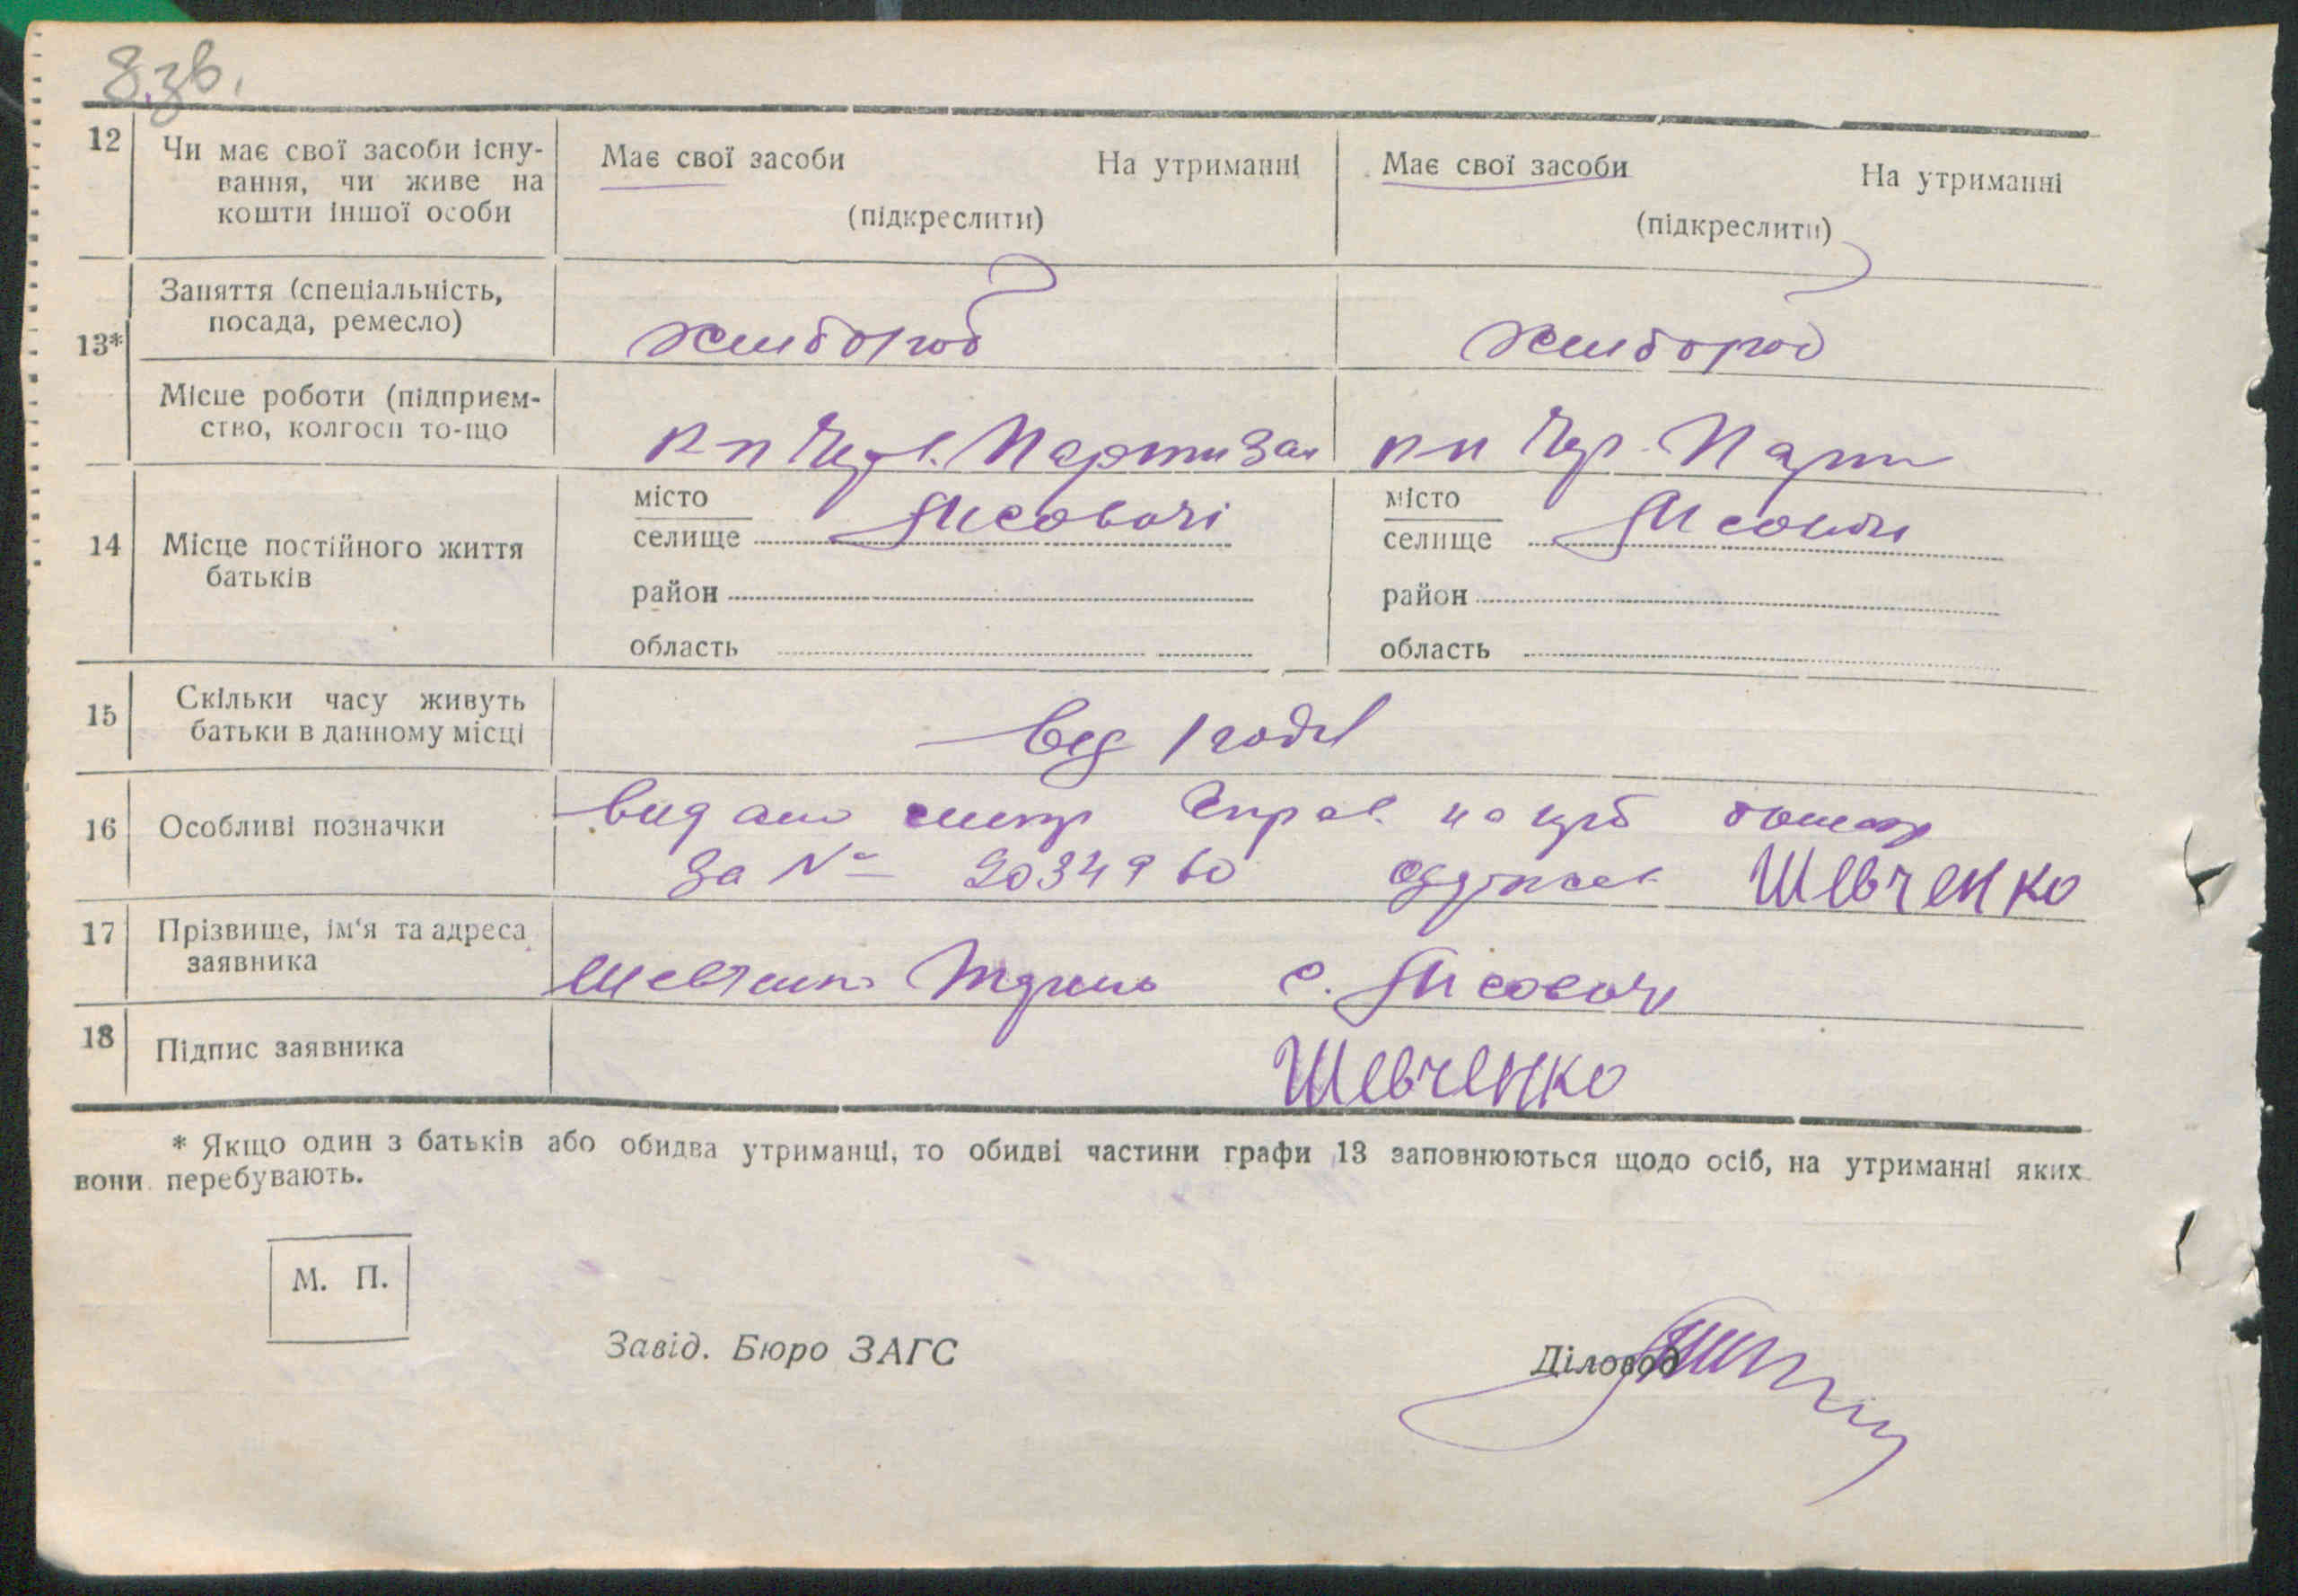 8.зв.
12 Чи має свої засоби існу-
вання, чи живе на
кошти іншої особи
Має свої засоби На утриманні
(підкреслити)
Має свої засоби На утриманні
(підкреслити)
13*
Заняття (спеціальність,
посада, ремесло)
хлибороб хлибороб
Місце роботи (підприєм-
ство, колгосп то-що
Черв. Партизан Чер. Парти
14 Місце постійного життя
батьків
місто
селище Лисовочі
район
область
місто
селище
район
область
15 Скільки часу живуть
батьки в данному місці
вид родж
16 Особливі позначки
видано
За №
Шевченко
17 Прізвище, ім'я та адреса
заявника
Шевченко с. Лісовочі
18 Підпис заявника
Шевченко
* Якщо один з батьків або обидва утриманці, то обидві частини графи 13 заповнюються щодо осіб, на утриманні яких
вони перебувають.
М. П.
Завід. Бюро ЗАГС Діловод